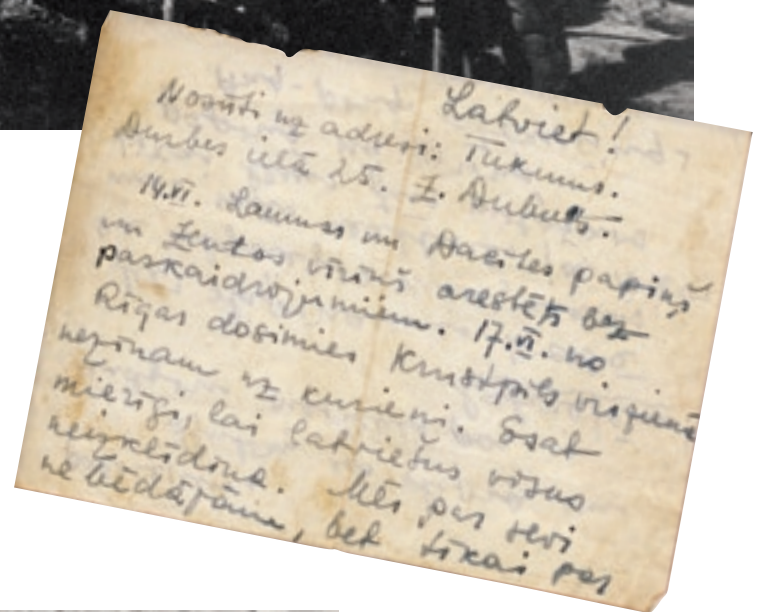 Latviet!
Nosūti uz adresi: Tukums.
Durbes ielā 25. Z. Dubults.
14.VI. Laumas un Dacītes papiņš
un Zentas vīriņš arestēti bez
paskaidrojumiem. 17.VI. no
Rīgas dosimies Krustpils virzienā
nezinam uz kurieni. Esat
mierīgi, lai latviešus visus
neizklīdina. Mēs par sevi
nebēdājam, bet tikai par